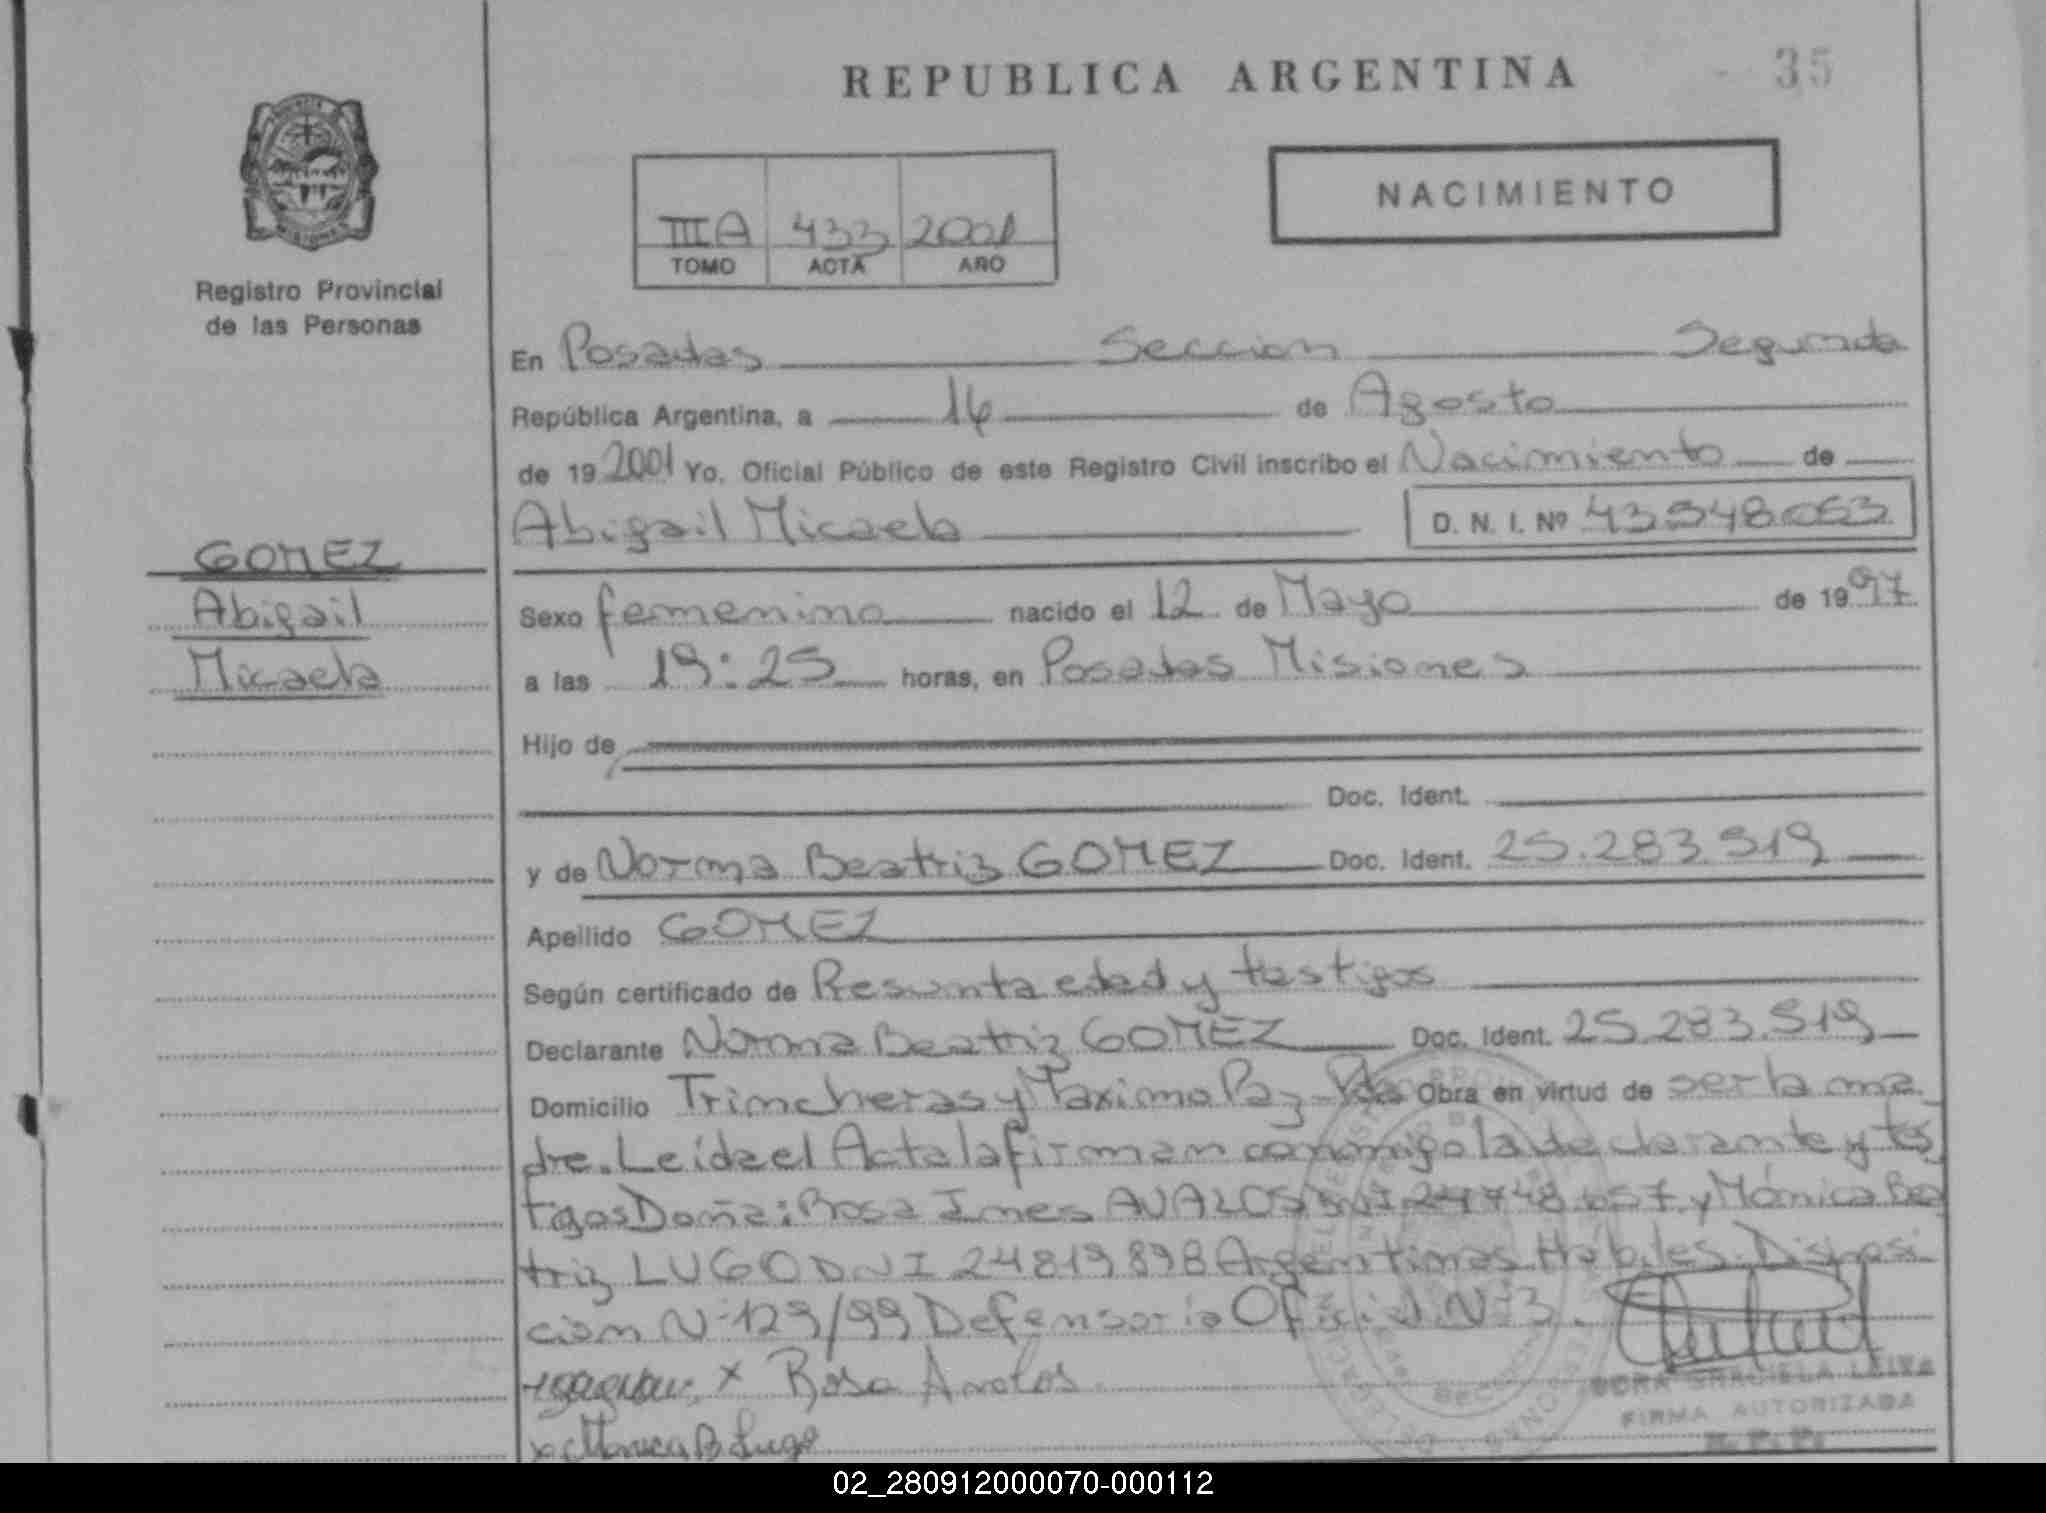 REPUBLICA ARGENTINA
35
Registro Provincial
de las Personas
III A 433 2001
TOMO ACTA AÑO
NACIMIENTO
En Posadas Seccion Segunda
República Argentina, a 14 de Agosto
de 19 2001 Yo, Oficial Público de este Registro Civil inscribo el Nacimiento de
Abigail Micaela D. N. I. Nº
GOMEZ
Abigail
Micaela
Sexo femenino nacido el 12 de Mayo de 1997
a las 19:25 horas, en Posadas Misiones
Hijo de
Doc. Ident.
y de Norma Beatriz GOMEZ Doc. Ident. 25.283.919
Apellido GOMEZ
Según certificado de Presunta edad y testigos
Declarante Norma Beatriz GOMEZ Doc. Ident. 25.283.919
Domicilio Trincheras y Maximo Paz Pdas Obra en virtud de ser la ma
dre. Leída el Acta la firman conmigo la declarante y tes
tigos Doña: Rosa Ines AVALOS DNI y Mónica Bea
triz LUGO DNI 24819898 Argentinas Hábiles. Disposi
cion Nº 129/99 Defensoria Oficial Nº 3.
x Rosa Avalos
x Monica B Lugo
GRACIELA LEIVA
FIRMA AUTORIZADA
R. P. P.
02_280912000070-000112